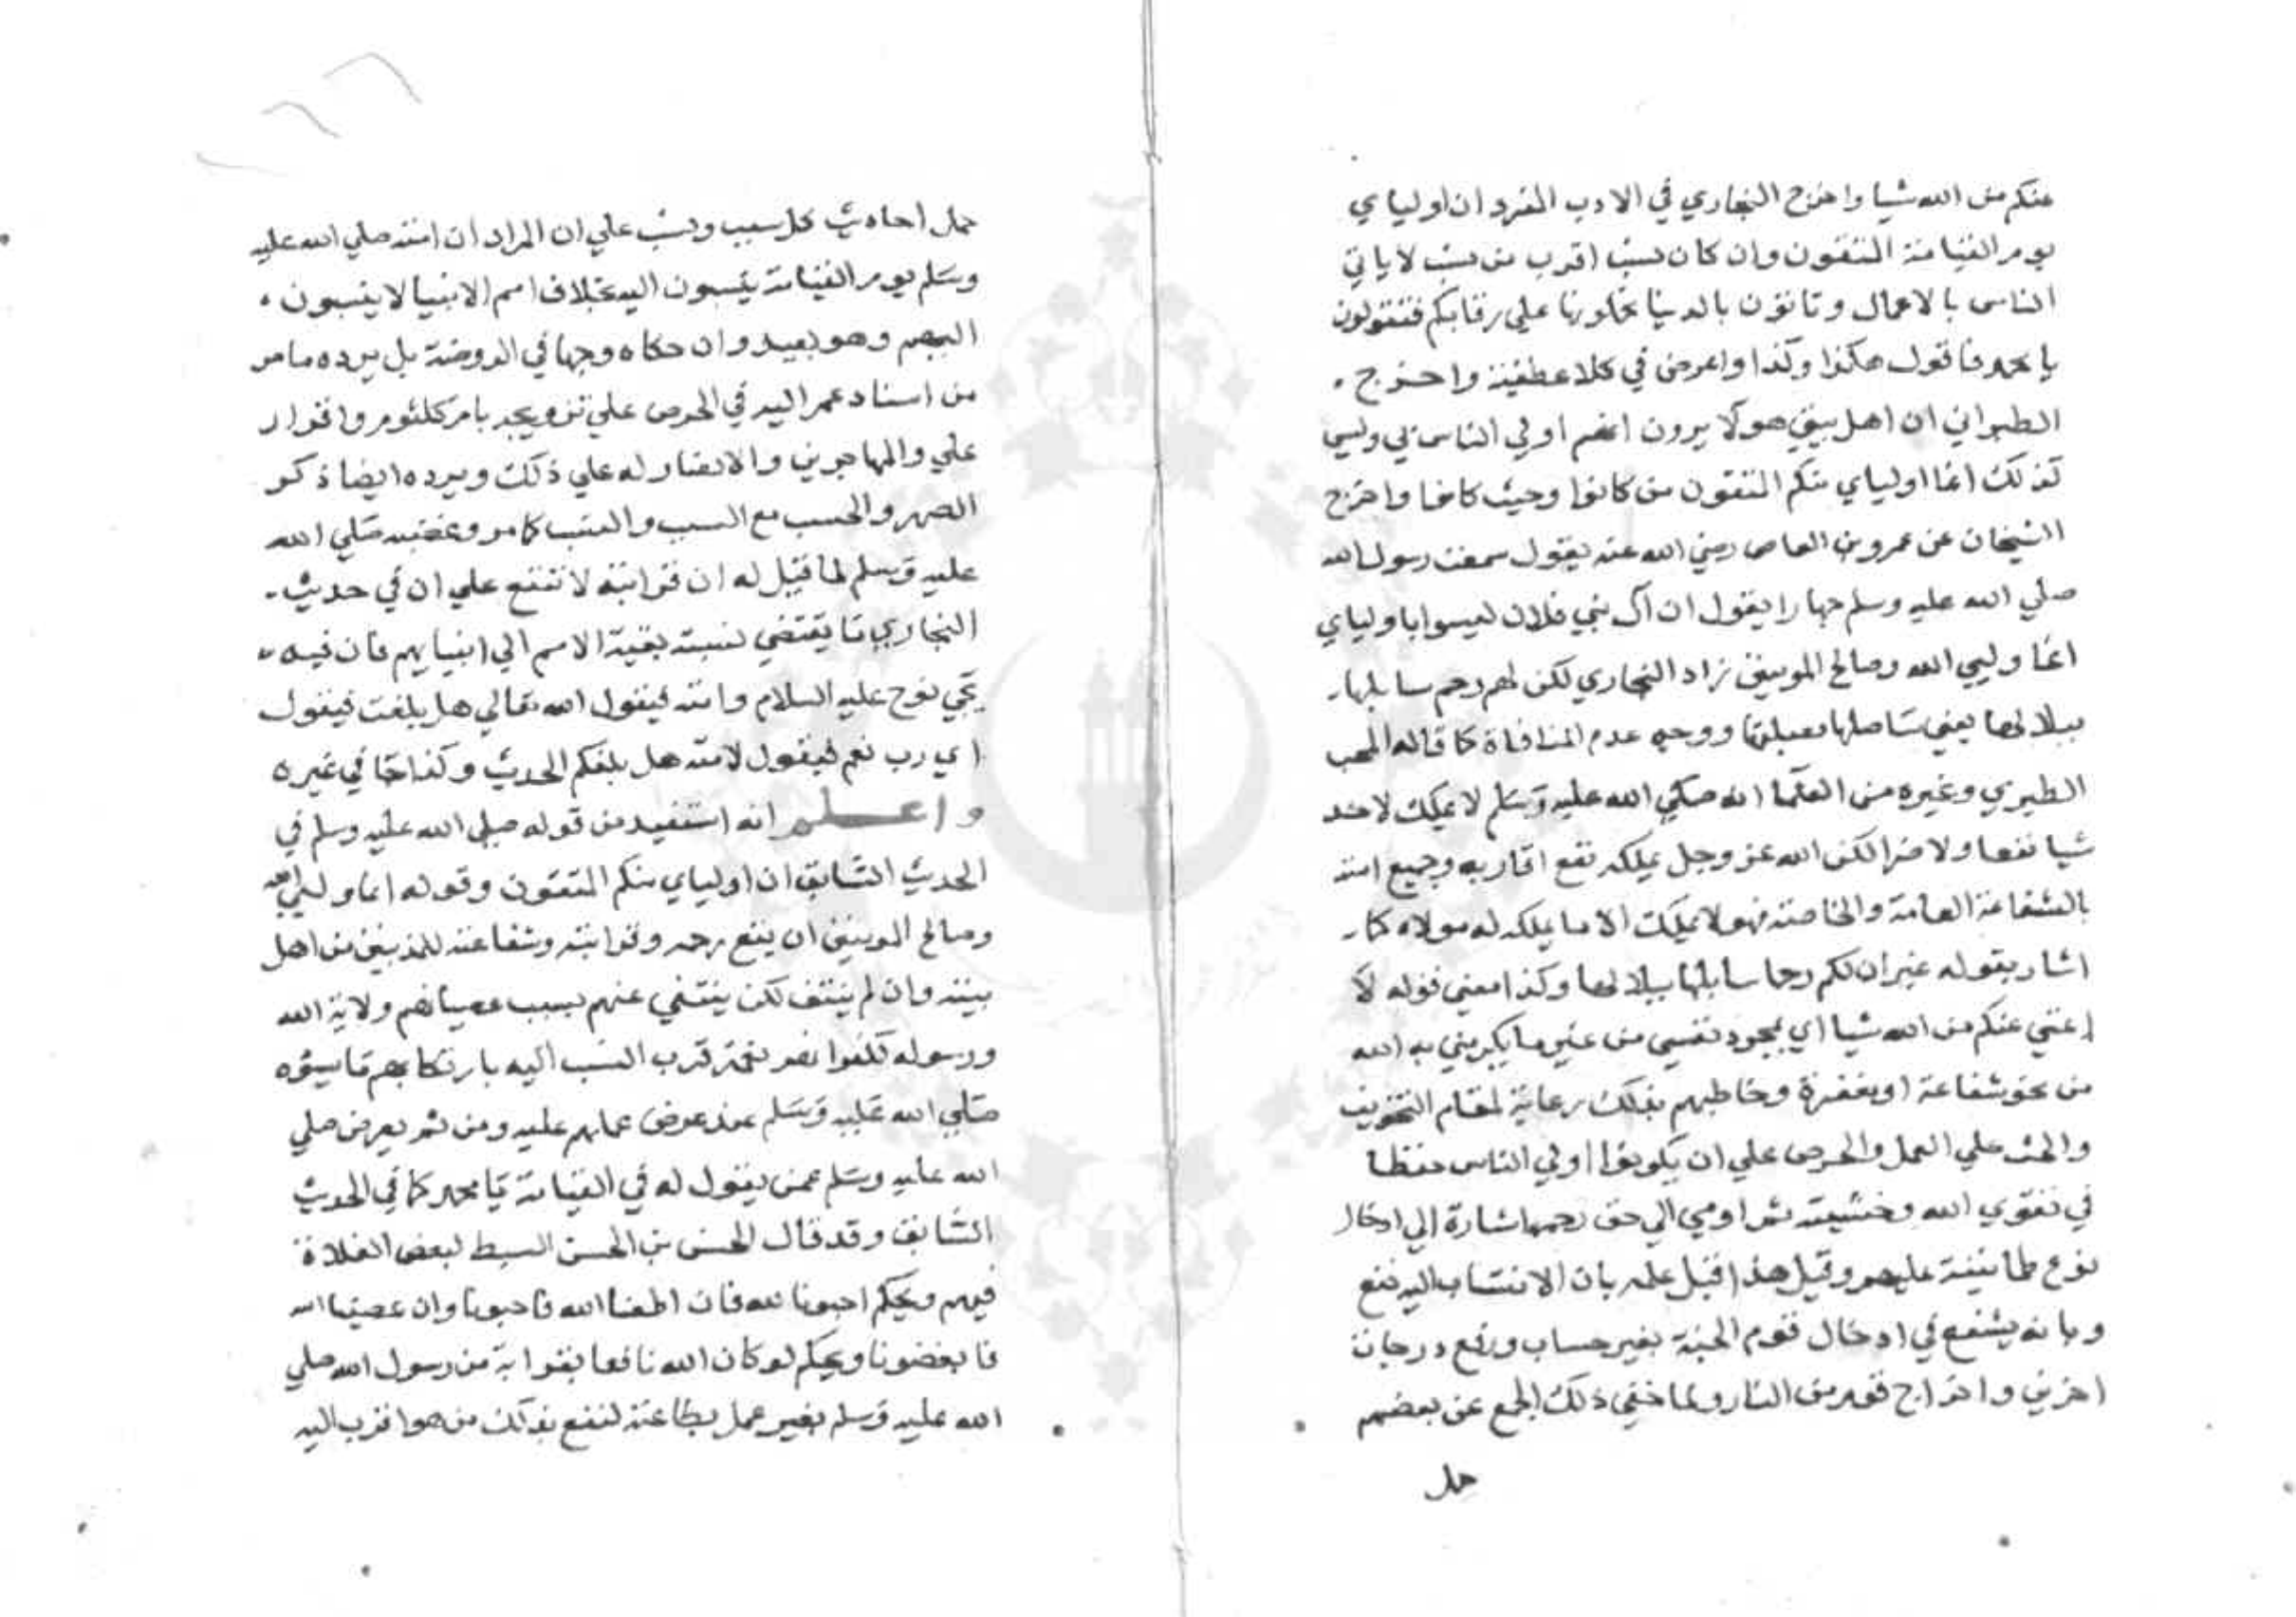 عنكم من الله شيا واخرج البخاري في الادب المفرد ان اوليايي
يوم القيامة المتقون وان كان نسب اقرب من نسب لا ياتي
الناس بالاعمال وتاتون بالدنيا تحلونها علي رقابكم فتقولون
يا محمد فاقول هكذا وكذا واعرض في كلا عطفيه واخرج
الطبراني ان اهل بيتي هولا يرون انهم اولي الناس بي وليس
كذلك انما اوليايي منكم المتقون من كانوا وحيث كانوا واخرج
الشيخان عن عمرو بن العاص رضي الله عنه يقول سمعت رسول الله
صلي الله عليه وسلم جهارا يقول ان آل بني فلان ليسوا باوليايي
انما وليي الله وصالح المومنين زاد البخاري لكن لهم رحم سابلها
ببلالها يعني ساصلها بصلتها ووجه عدم المنافاة كما قاله المحب
الطبري وغيره من العلما انه صلي الله عليه وسلم لا يملك لاحد
شيا نفعا ولا ضرا لكن الله عز وجل يملكه نفع اقاربه وجميع امته
بالشفاعة العامة والخاصة فهو لا يملك الا ما يملكه له مولاه كما
اشار بقوله غير ان لكم رحما سابلها ببلالها وكذا معني قوله لا
اغني عنكم من الله شيا اي بمجرد نفسي من غير ما يكرمني به الله
من نحو شفاعة او مغفرة وخاطبهم بذلك رعاية لمقام التخويف
والحث علي العمل والحرص علي ان يكونوا اولي الناس حظا
في تقوي الله وخشيته ثم اومي الي حق رحمه اشارة الي ادخال
نوع طمانينة عليهم وقيل هذا قبل علمه بان الانتساب اليه ينفع
وبانه يشفع في ادخال قوم الجنة بغير حساب ورفع درجات
اخرين واخراج قوم من النار ولما خفي ذلك الجمع عن بعضهم
حمل
حمل احاديث كل سبب ونسب علي ان المراد ان امته صلي الله عليه
وسلم يوم القيامة ينسبون اليه بخلاف امم الانبيا لا ينسبون
اليهم وهو بعيد وان حكاه وجها في الروضة بل يرده ما مر
من اسناد عمر اليه في الحرص علي تزويجه بام كلثوم واقرار
علي والمهاجرين والانصار له علي ذلك ويرده ايضا ذكر
الصهر والحسب مع السبب والنسب كما مر وغضبه صلي الله
عليه وسلم لما قيل له ان قرابته لا تنفع علي ان في حديث
البخاري ما يقتضي نسبة بقية الامم الي انبيايهم فان فيه
يجي نوح عليه السلام وامته فيقول الله تعالي هل بلغت فيقول
اي رب نعم فيقول لامته هل بلغكم الحديث وكذا جا في غيره
واعلم انه استفيد من قوله صلي الله عليه وسلم في
الحديث السابق ان اوليايي منكم المتقون وقوله انما وليي الله
وصالح المومنين ان نفع رحمه وقرابته وشفاعته للمذنبين من اهل
بيته وان لم ينتف لكن ينتفي عنهم بسبب عصيانهم ولاية الله
ورسوله لكفرانهم نعمة قرب النسب اليه بارتكابهم ما يسوه
صلي الله عليه وسلم عند عرض عملهم عليه ومن ثم يعرض صلي
الله عليه وسلم عمن يقول له في القيامة يا محمد كما في الحديث
السابق وقد قال الحسن بن الحسن السبط لبعض الغلاة
فيهم ويحكم احبونا لله فان اطعنا الله فاحبونا وان عصينا الله
فابغضونا ويحكم لو كان الله نافعا بقرابة من رسول الله صلي
الله عليه وسلم بغير عمل بطاعته لنفع بذلك من هو اقرب اليه